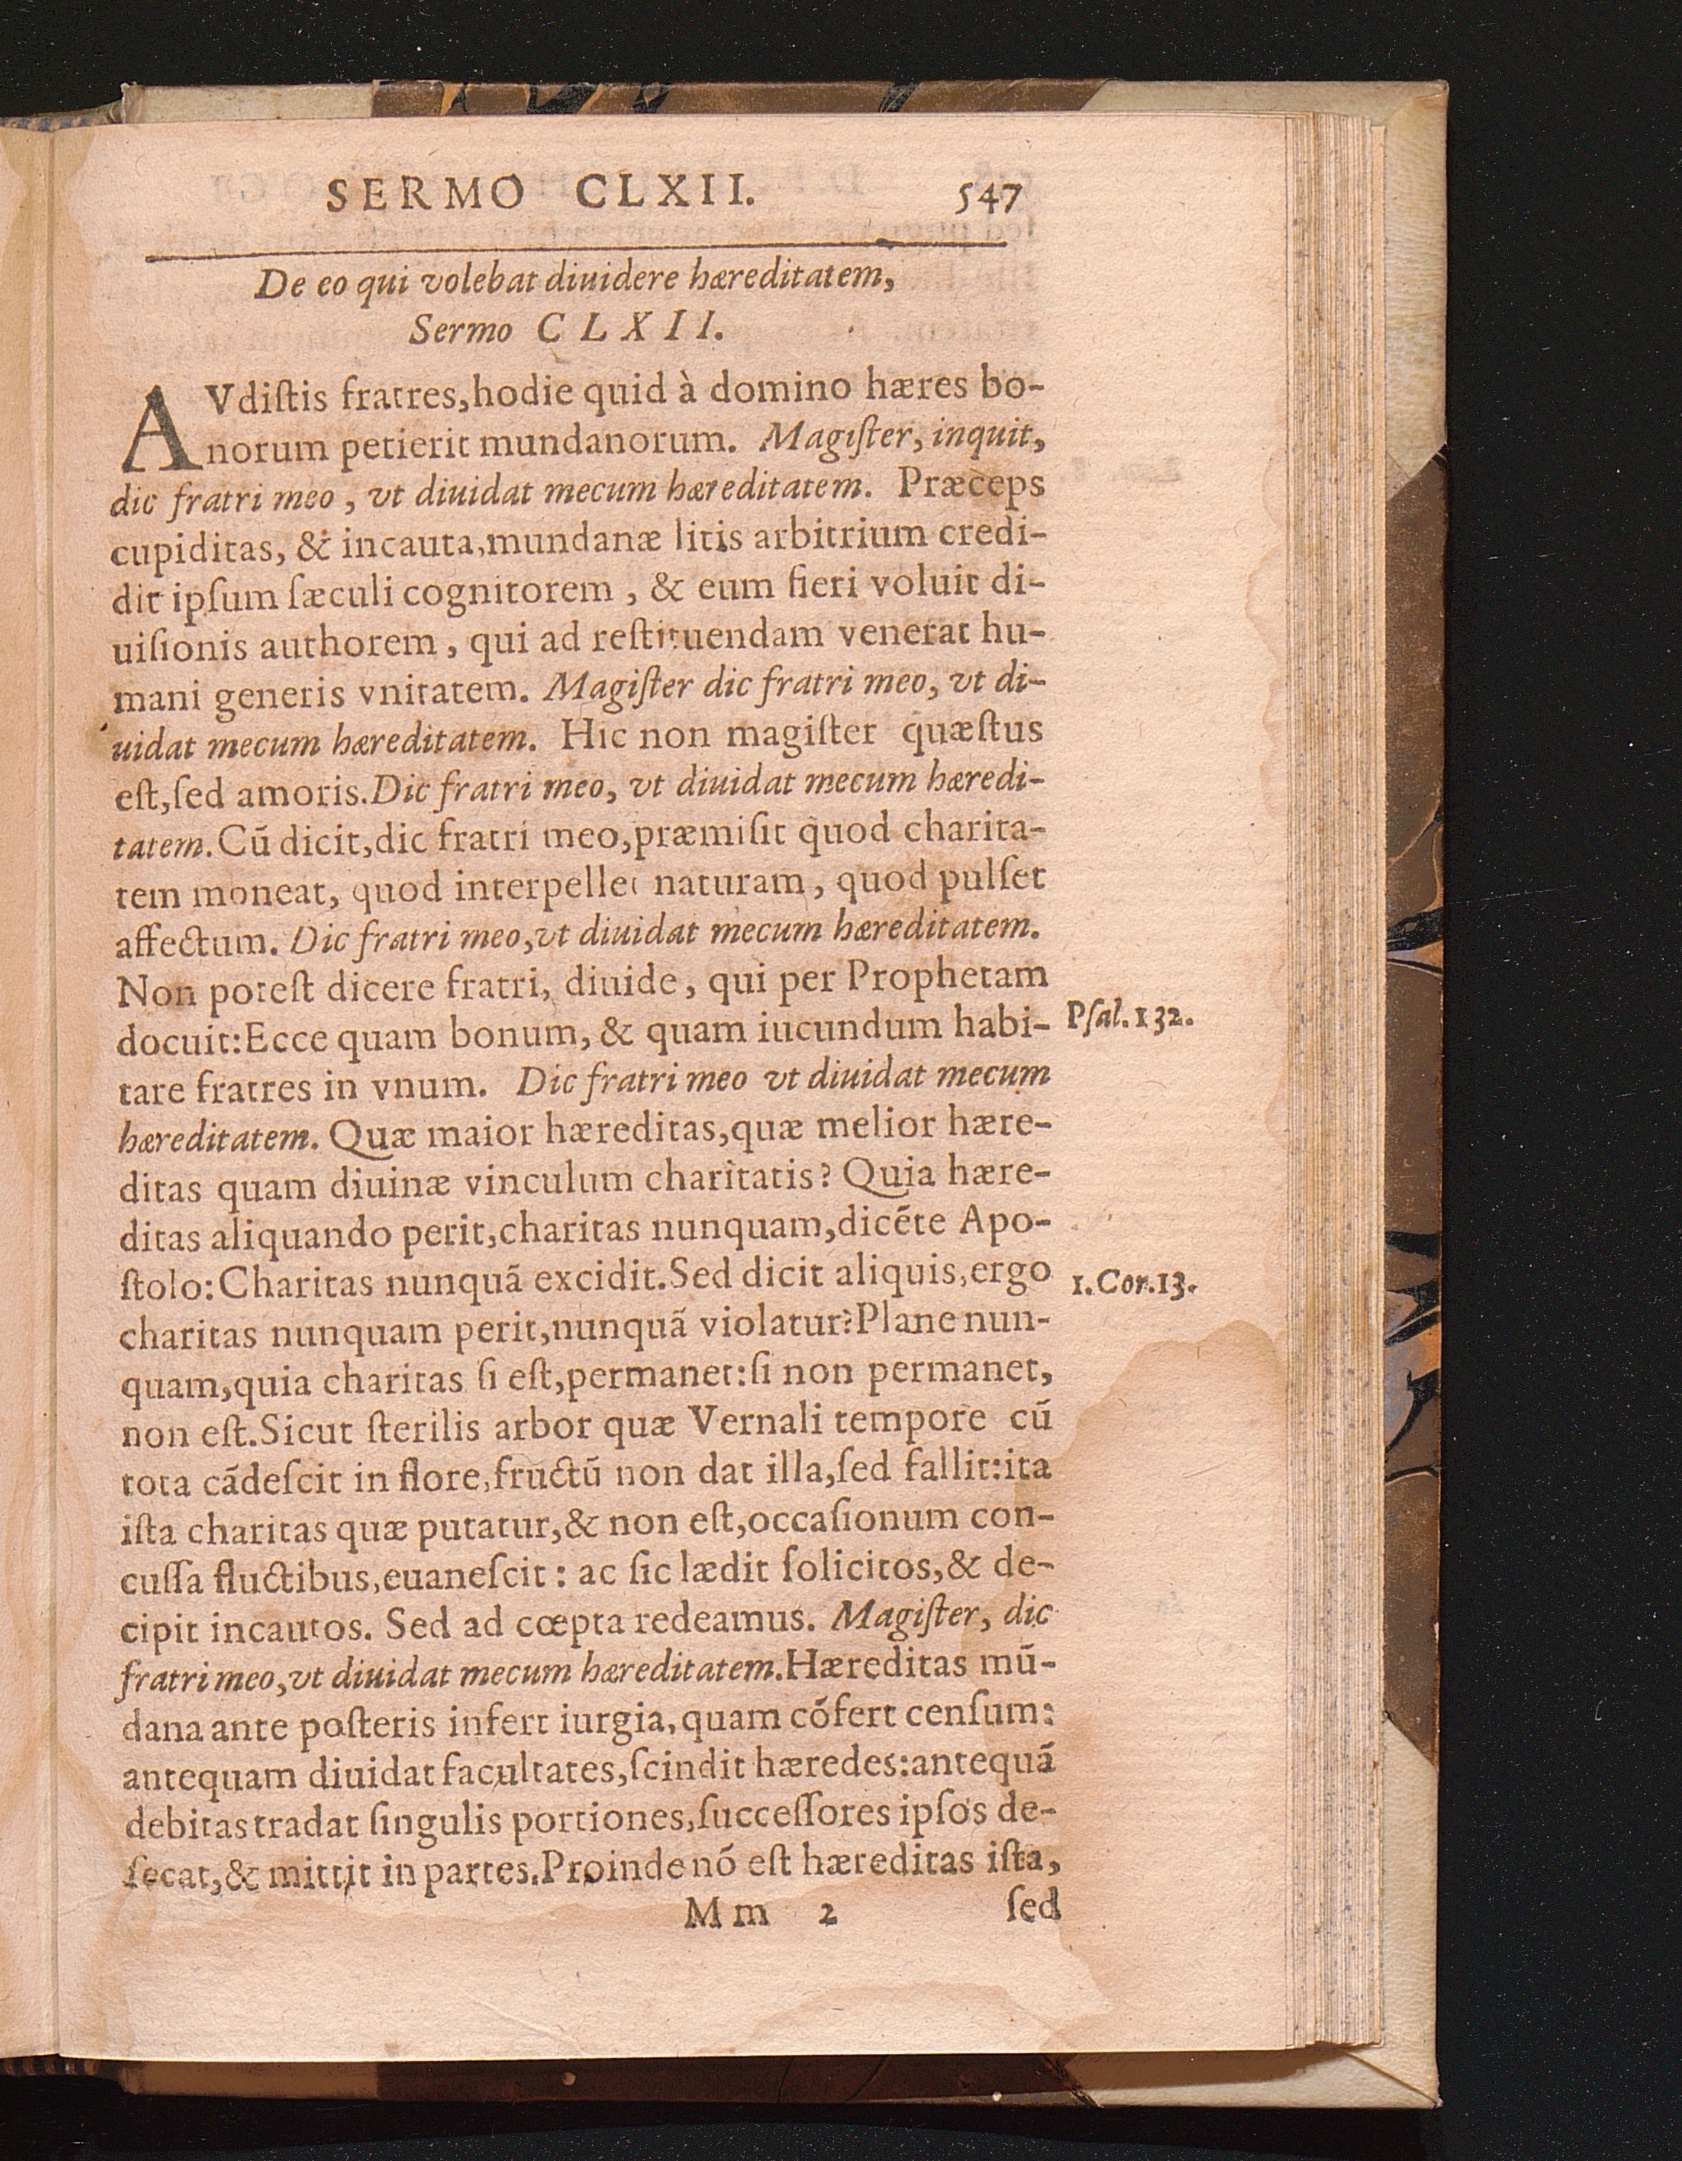 SERMO CLXII. 547
De eo qui volebat diuidere hæreditatem,
Sermo CLXII.
AVdiſtis fratres,hodie quid à domino hæres bo-
norum petierit mundanorum. Magiſter, inquit,
dic fratri meo , vt diuidat mecum hæreditatem. Præceps
cupiditas, & incauta,mundanæ litis arbitrium credi-
dit ipſum ſæculi cognitorem , & eum fieri voluit di-
uiſionis authorem , qui ad reſtituendam venerat hu-
mani generis vnitatem. Magiſter dic fratri meo, vt di-
uidat mecum hæreditatem. Hic non magiſter quæſtus
eſt,ſed amoris.Dic fratri meo, vt diuidat mecum hæredi-
tatem.Cū dicit,dic fratri meo,præmiſit quod charita-
tem moneat, quod interpellet naturam, quod pulſet
affectum. Dic fratri meo,vt diuidat mecum hæreditatem.
Non poteſt dicere fratri, diuide, qui per Prophetam
docuit:Ecce quam bonum, & quam iucundum habi- Pſal.132.
tare fratres in vnum. Dic fratri meo vt diuidat mecum
hæreditatem. Quæ maior hæreditas,quæ melior hære-
ditas quam diuinæ vinculum charitatis? Quia hære-
ditas aliquando perit,charitas nunquam,dicēte Apo-
ſtolo:Charitas nunquā excidit.Sed dicit aliquis,ergo 1.Cor.13.
charitas nunquam perit,nunquā violatur?Plane nun-
quam,quia charitas ſi eſt,permanet:ſi non permanet,
non eſt.Sicut ſterilis arbor quæ Vernali tempore cū
tota cādeſcit in flore,fructū non dat illa,ſed fallit:ita
iſta charitas quæ putatur,& non eſt,occaſionum con-
cuſſa fluctibus,euaneſcit : ac ſic lædit ſolicitos,& de-
cipit incautos. Sed ad cœpta redeamus. Magiſter, dic
fratri meo,vt diuidat mecum hæreditatem.Hæreditas mū-
dana ante poſteris infert iurgia,quam cōfert cenſum:
antequam diuidat facultates,ſcindit hæredes:antequā
debitas tradat ſingulis portiones,ſucceſſores ipſos de-
ſecat,& mittit in partes.Proinde nō eſt hæreditas iſta,
Mm 2 ſed